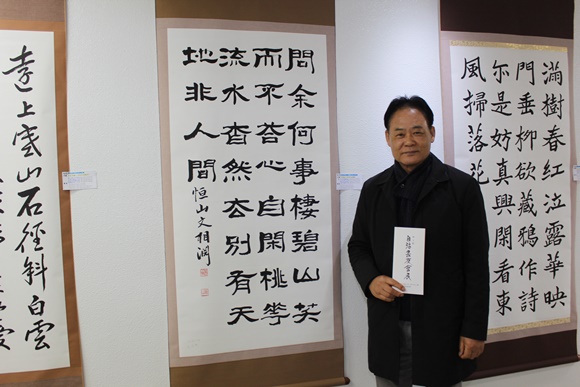 滿樹春紅泣露華映
門垂柳欲藏鴉作詩
尓是妨真興閑看東
風掃落花
問余何事棲碧山笑
而不荅心自閑桃華
流水杳然去別有天
地非人間
恒山文相潤
遠上寒山石徑斜白雲